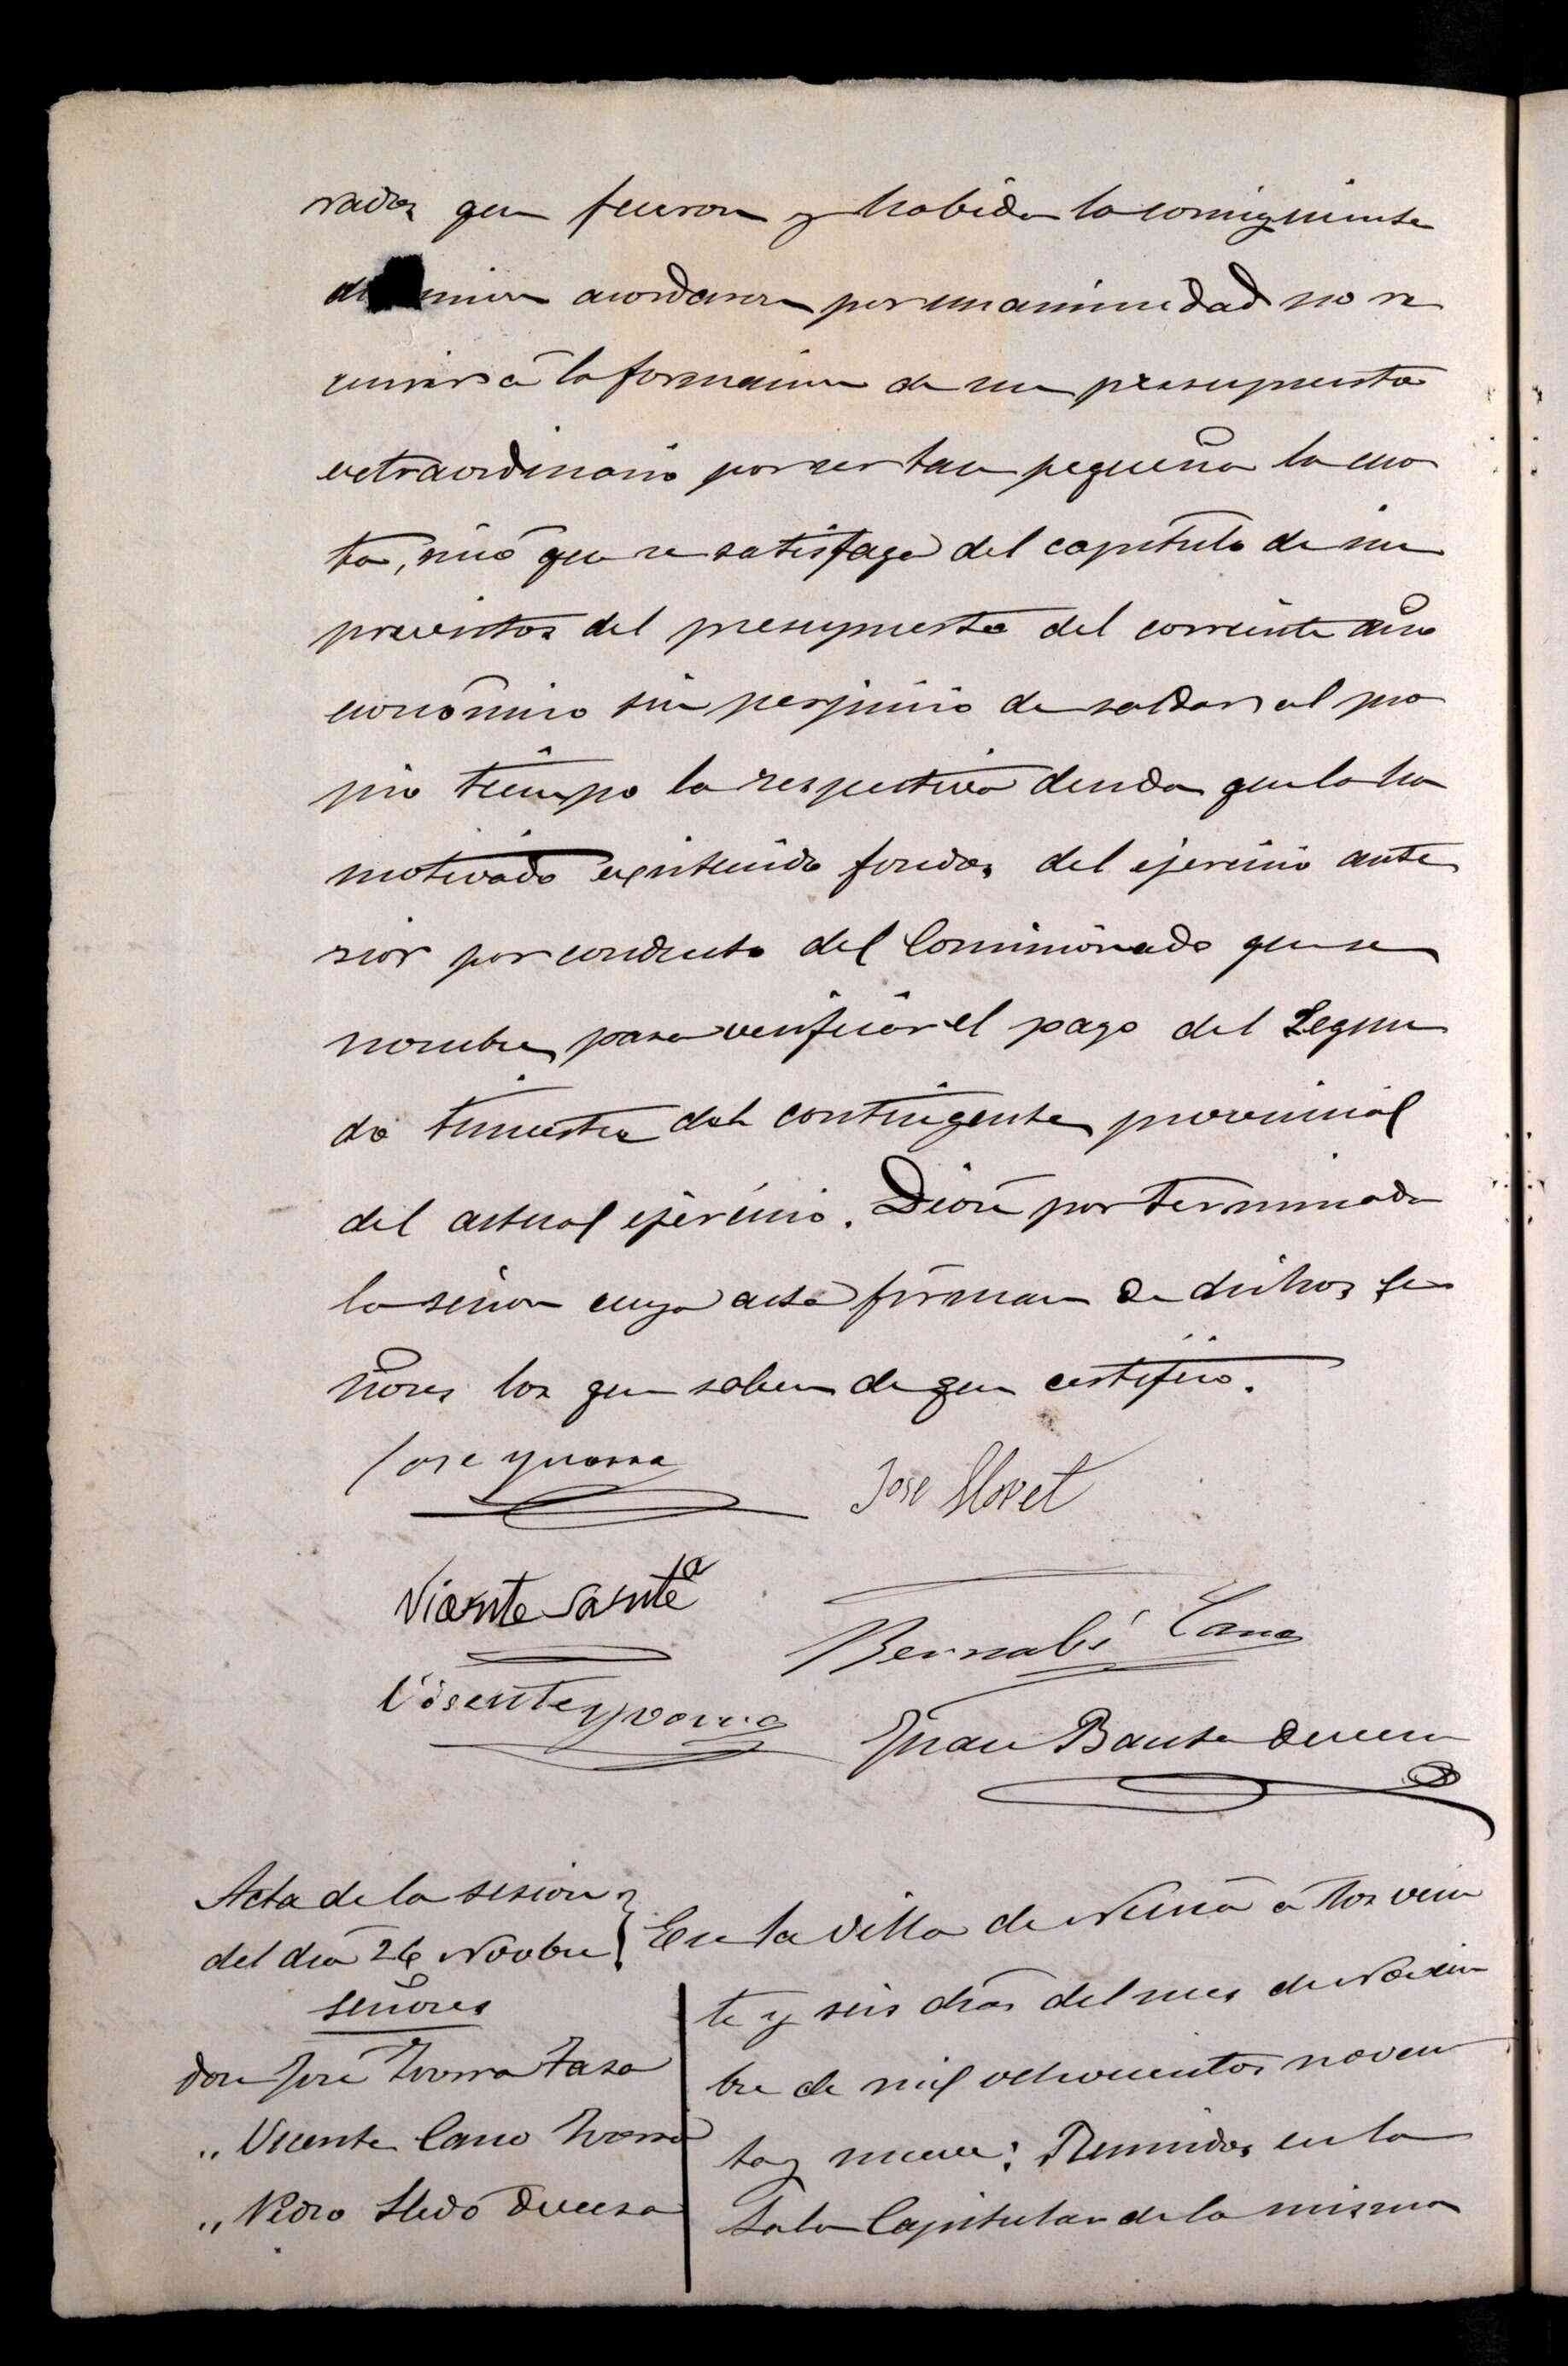 rados que fueron y habida la consiguiente
discusion acordaron por unanimidad no re
currir á la formacion de un presupuesto
extraordinario por ser tan pequeña la cuo
ta, sinó que se satisfaga del capítulo de im
previstos del presupuesto del corriente año
económico sin perjuicio de saldar al pro
pio tiempo la respectiva deuda que lo ha
motivado existiendo fondos del ejercicio ante
rior por conducto del Comisionado que se
nombre para verificar el pago del Segun
do trimestre del contingente provincial
del actual ejercicio. Dióse por terminada
la sesion cuya acta firman de dichos se
ñores los que saben de que certifico.
Jose Yvorra
Jose Lloret
Vicente Santa
Bernabé Cano
Visente Yvorra
Juan Bauta Devesa
Acta de la sesion
del dia 26 Novbre
Señores
Don José Ivorra
" Vicente Cano Ivorra
" Pedro Lledó Devesa
En la Villa de Nucia á los vein
te y seis dias del mes de Noviem
bre de mil ochocientos noven
ta y nueve: Reunidos en la
Sala Capitular de la misma